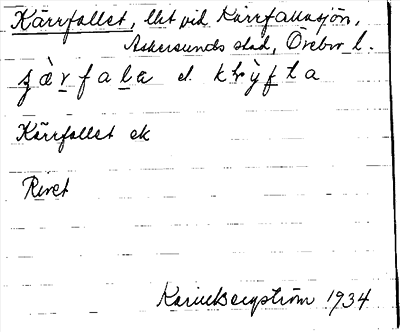 Kärrfallet, lht vid Kärrfallasjön,
Askersunds stad, Örebro l.
Kärrfallet ek
Revet
Karin Bergström 1934